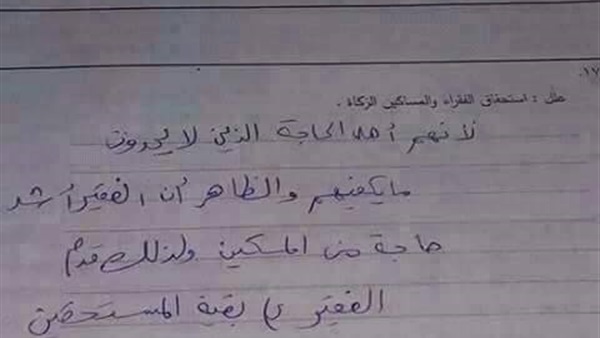 ١٧.
علل : استحقاق الفقراء والمساكين الزكاة .
لأنهم أهل الحاجة الذين لا يجدون
ما يكفيهم والظاهر أن الفقير أشد
حاجة من المسكين ولذلك قدم
الفقير على بقية المستحقين